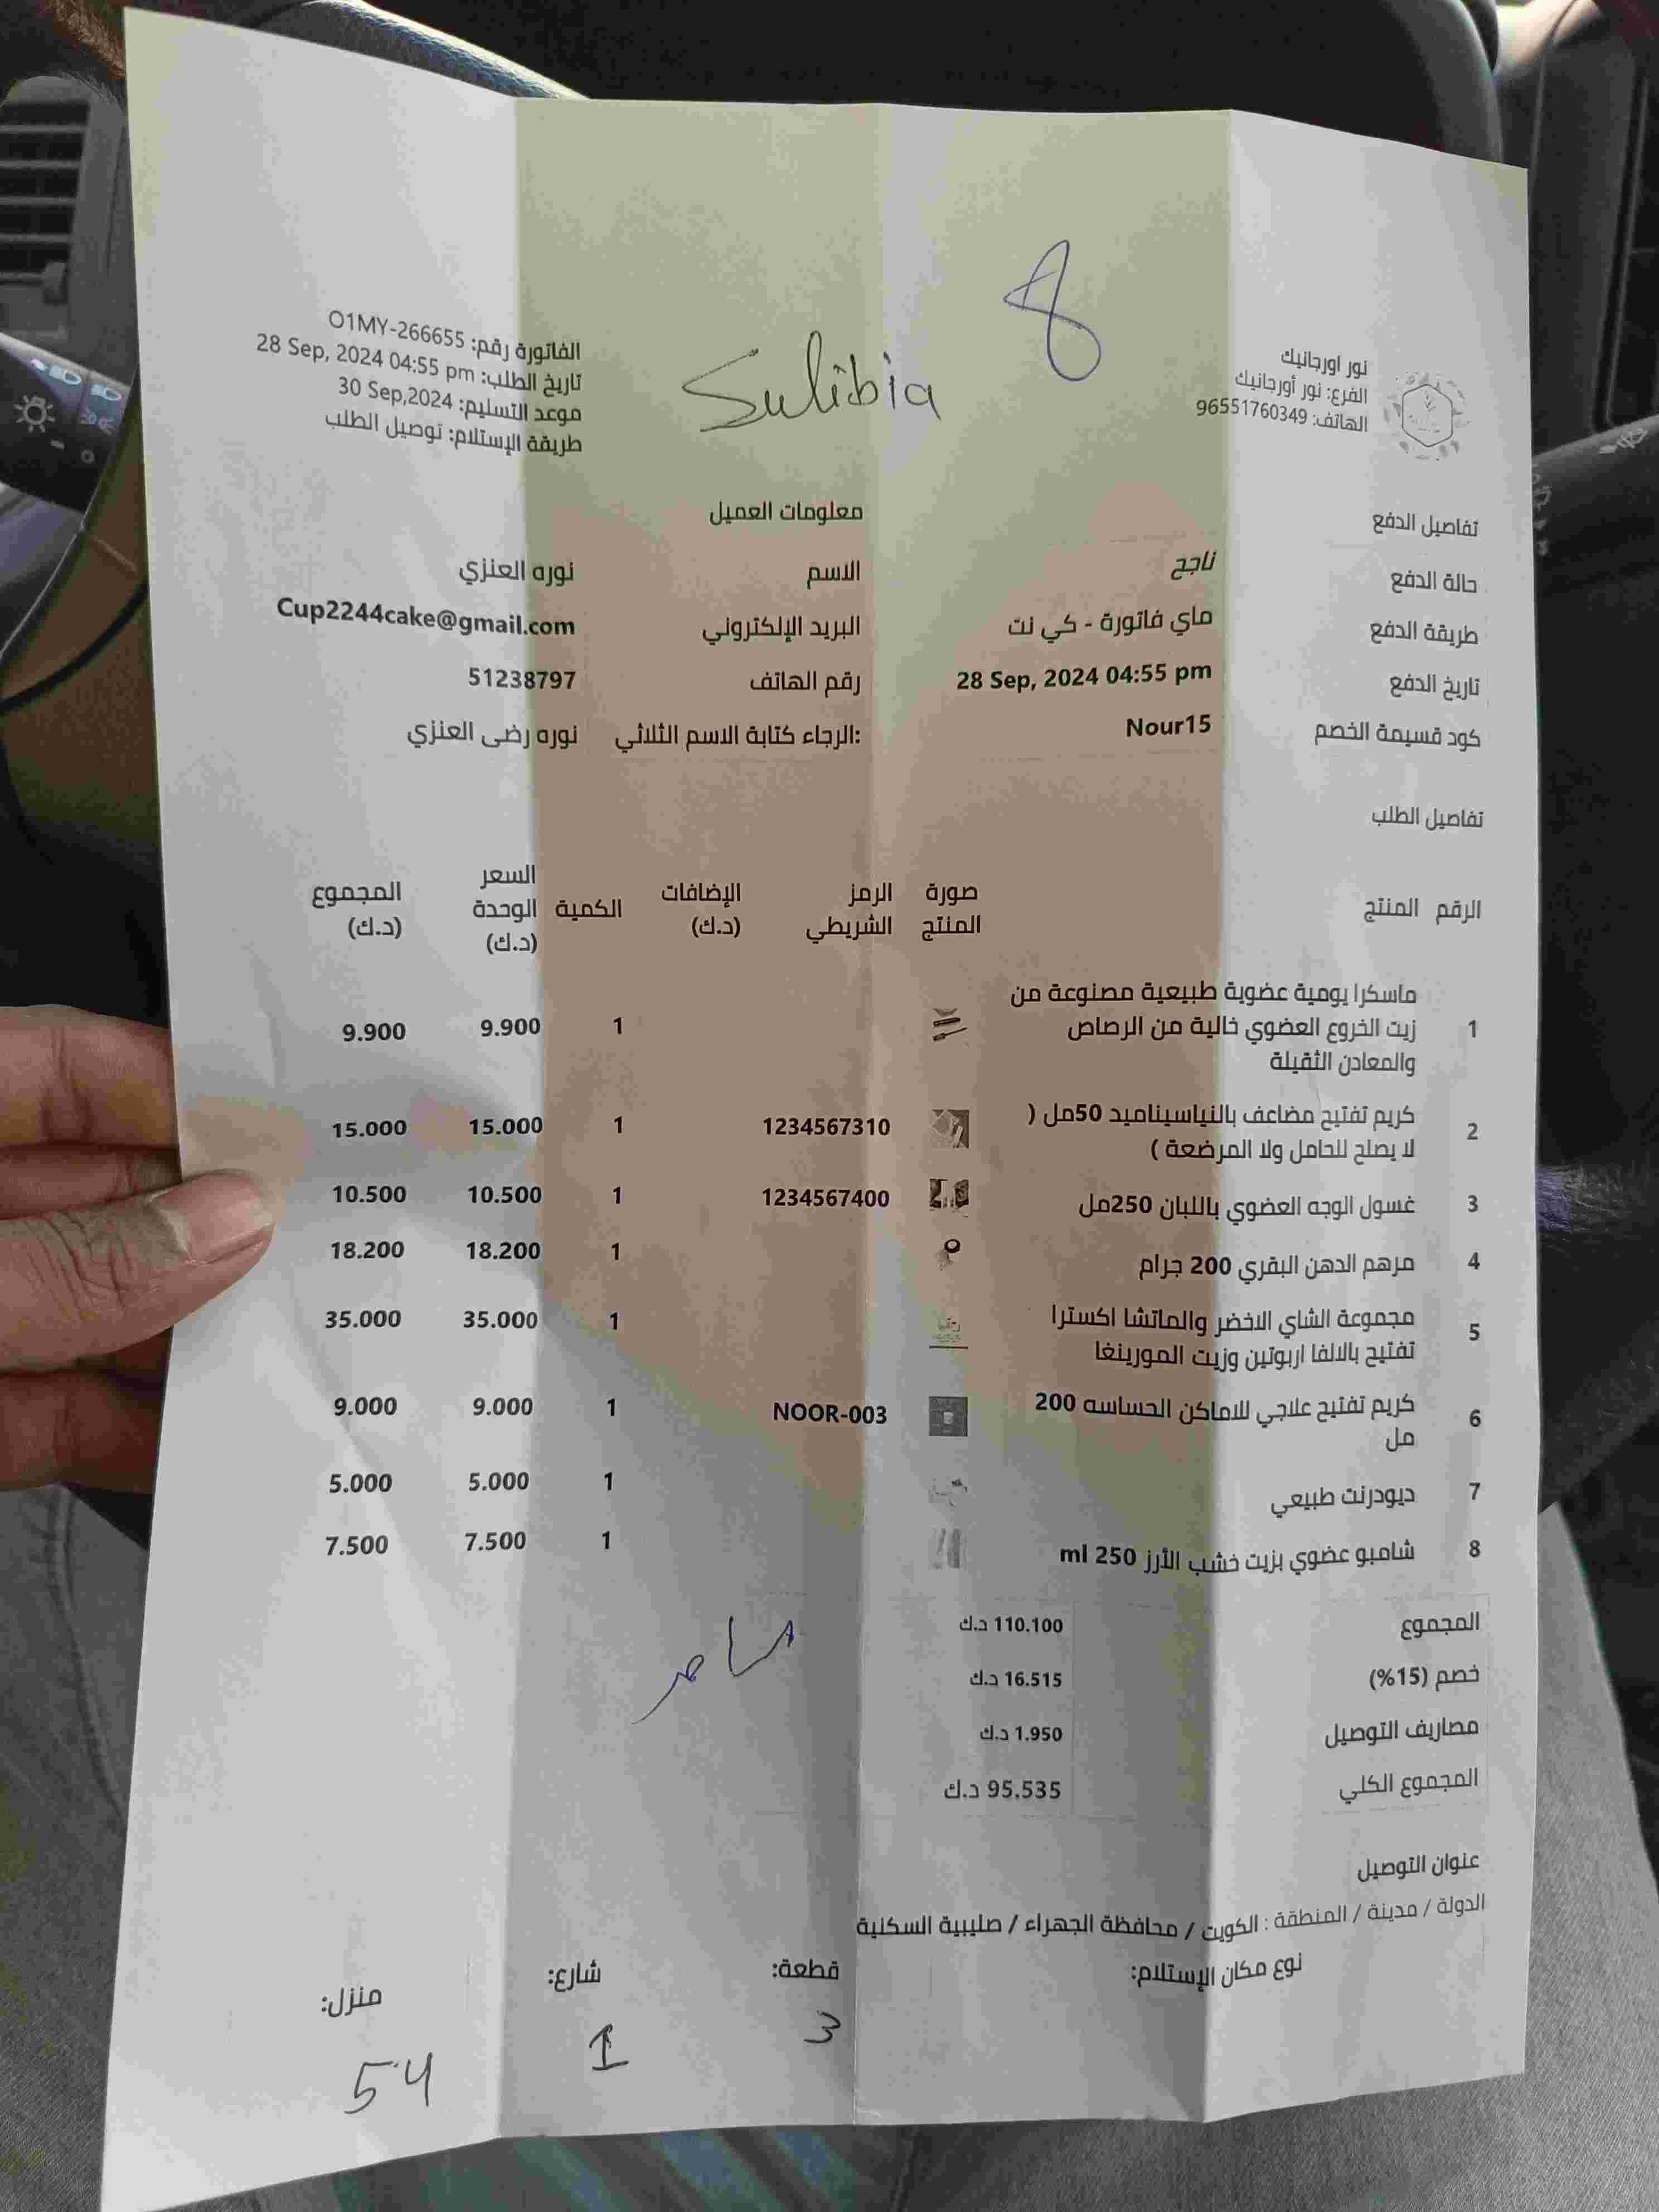 8
Sulibia
نور اورجانيك
الفرع: نور أورجانيك
الهاتف: 96551760349
الفاتورة رقم: O1MY-266655
تاريخ الطلب: 28 Sep, 2024 04:55 pm
موعد التسليم: 30 Sep,2024
طريقة الإستلام: توصيل الطلب
تفاصيل الدفع
حالة الدفع ناجح
طريقة الدفع ماي فاتورة - كي نت
تاريخ الدفع 28 Sep, 2024 04:55 pm
كود قسيمة الخصم Nour15
معلومات العميل
الاسم نوره العنزي
البريد الإلكتروني Cup2244cake@gmail.com
رقم الهاتف 51238797
الرجاء كتابة الاسم الثلاثي: نوره رضى العنزي
تفاصيل الطلب
الرقم المنتج صورة المنتج الرمز الشريطي الإضافات (د.ك) الكمية السعر الوحدة (د.ك) المجموع (د.ك)
1 ماسكرا يومية عضوية طبيعية مصنوعة من
زيت الخروع العضوي خالية من الرصاص 1 9.900 9.900
والمعادن الثقيلة
2 كريم تفتيح مضاعف بالنياسيناميد 50مل ( 1234567310 1 15.000 15.000
لا يصلح للحامل ولا المرضعة )
3 غسول الوجه العضوي باللبان 250مل 1234567400 1 10.500 10.500
4 مرهم الدهن البقري 200 جرام 1 18.200 18.200
5 مجموعة الشاي الاخضر والماتشا اكسترا 1 35.000 35.000
تفتيح بالالفا اربوتين وزيت المورينغا
6 كريم تفتيح علاجي للاماكن الحساسه 200 NOOR-003 1 9.000 9.000
مل
7 ديودرنت طبيعي 1 5.000 5.000
8 شامبو عضوي بزيت خشب الأرز 250 ml 1 7.500 7.500
المجموع 110.100 د.ك
خصم (15%) 16.515 د.ك
مصاريف التوصيل 1.950 د.ك
المجموع الكلي 95.535 د.ك
عنوان التوصيل
الدولة / مدينة / المنطقة : الكويت / محافظة الجهراء / صليبية السكنية
نوع مكان الإستلام: قطعة: شارع: منزل:
3 1 54